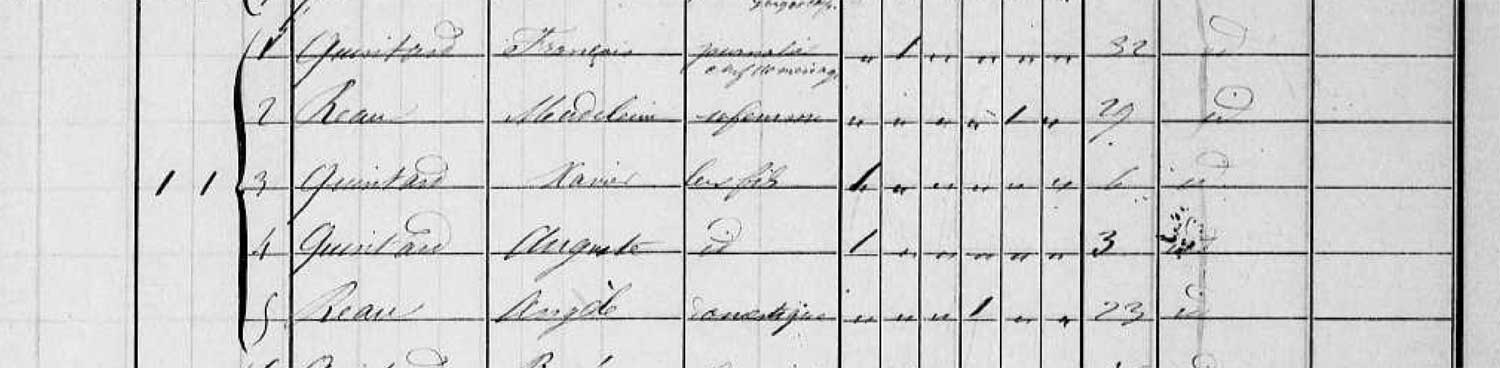 1 Quintard François journalier „ 1 „ „ „ „ 32 id
chef de ménage
2 Reau Madeleine sa femme „ „ „ „ 1 „ 29 id
1 1 3 Quintard Xavier leur fils 1 „ „ „ „ „ 6 id
4 Quintard Auguste id 1 „ „ „ „ „ 3 id
5 Reau Angèle domestique „ „ „ 1 „ „ 23 id